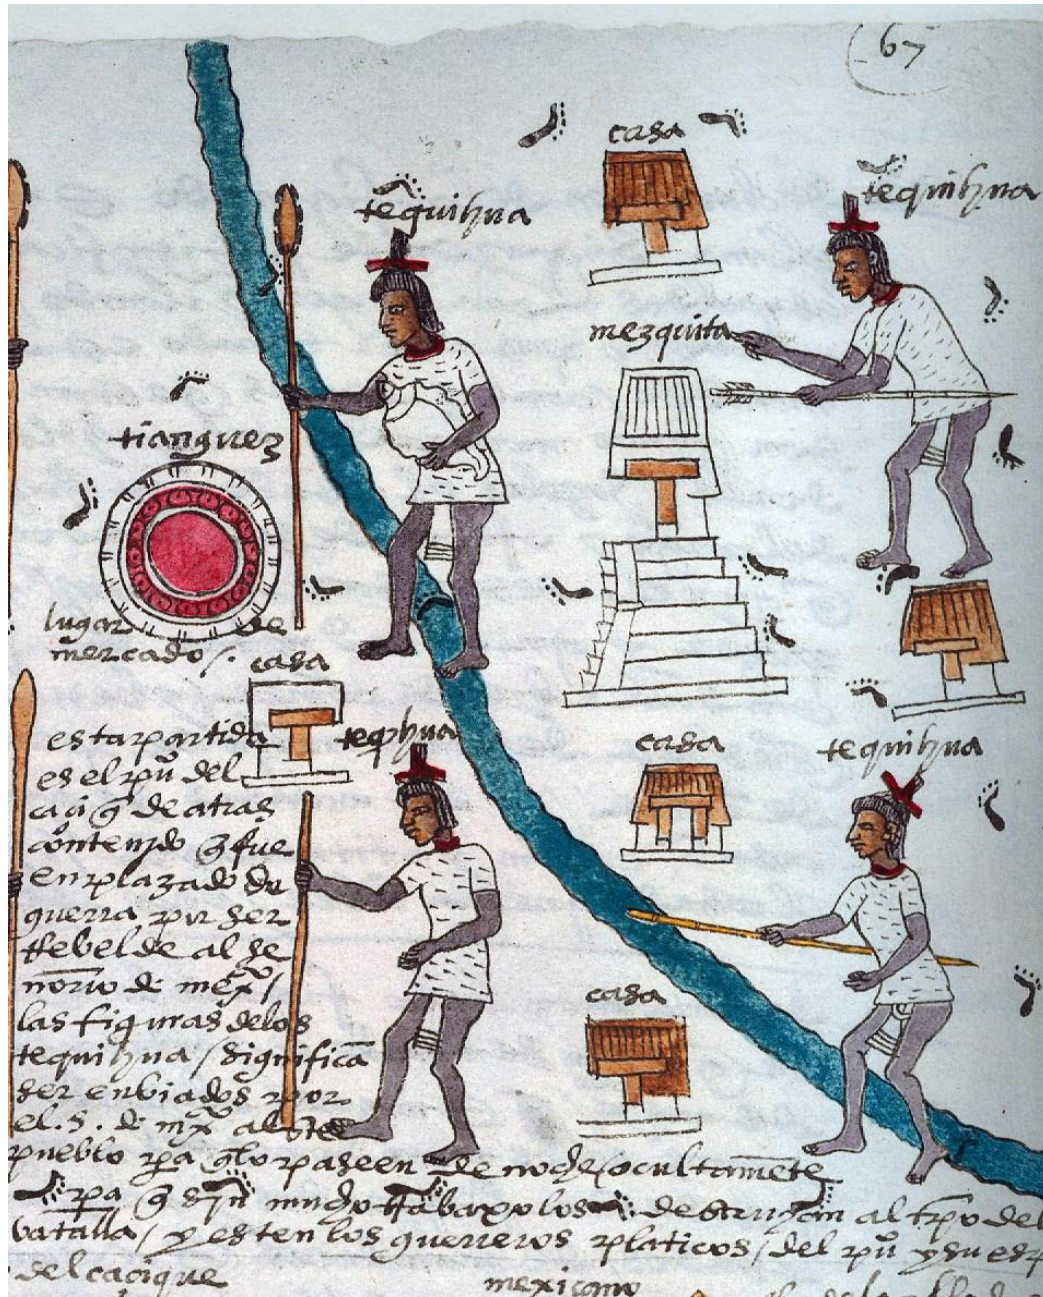 67
casa
tequihua
tequihua
mezquita
tianguez
lugar de
mercado /.
casa
tequihua
casa
tequihua
casa
esta partida
es el pu del
caciq̃ de atras
contenjdo q̃ fue
enplazado de
guerra por ser
Rebelde al se
norio de mexco /
las figuras delos
tequihua / significã
ser enbiados por
el .s. de mexco al
pueblo pa q̃ lo paseen de noche / ocultamẽte
pa q̃ sin mucho trabaxo los destruyan al tpo del
batalla / y esten los guerreros platicos / del pu y su
del cacique
mexicano